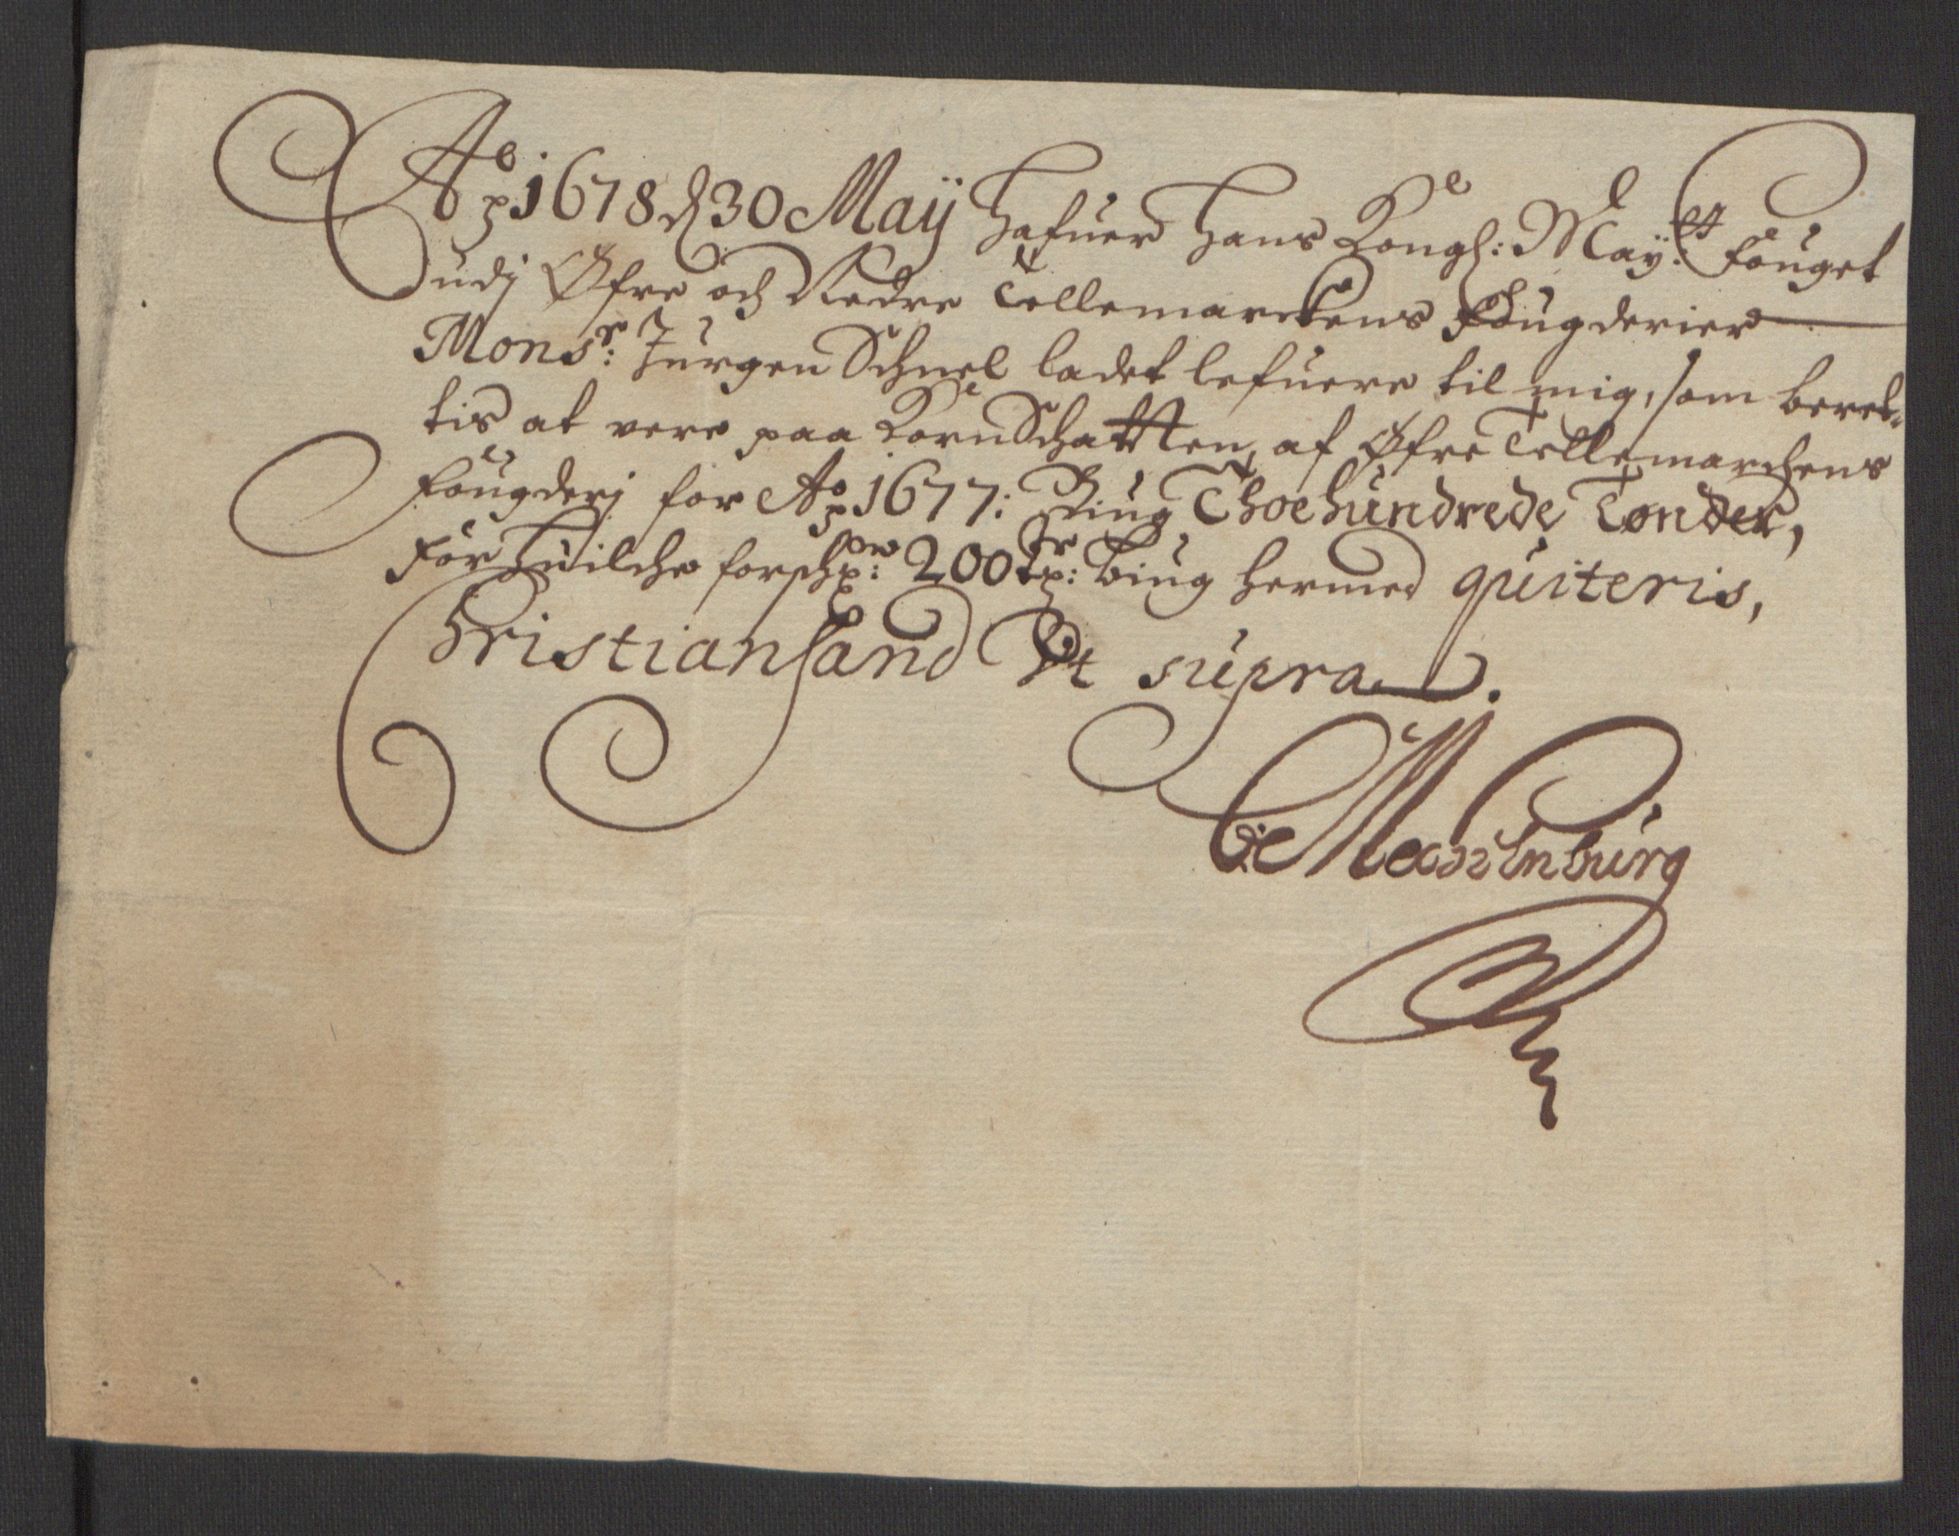 Ao 1678 d 30 Maÿ Hafuer Hans Kongl: Maÿ:tt Fouget
udj Øfre och Nedre Tellemarckens Fougderier
Monsr: Jürgen Schnel ladet lefuere til mig, som beret-
tis at vere paa KornSchatten, af Øfre Tellemarchens
Fougderj for Ao 1677: Biug Thoehundrede Tønder,
For Huilche forschr: 200 tr: biug hermed quiteris,
Christiansand Ut supra.
Mecklnburg